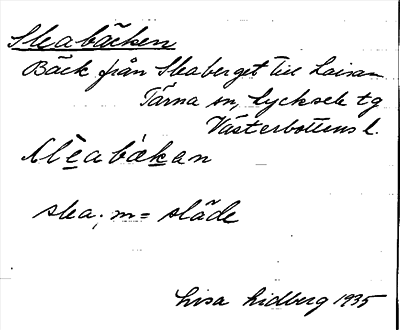 Sleabäcken
Bäck från Sleaberget till Laisan
Tärna sn, Lycksele tg
Västerbottens l.
slea; m = släde
Lisa Lidberg 1935